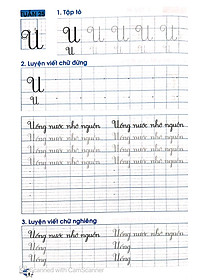 1. Tập tô
U U U U U U
2. Luyện viết chữ đứng
U U
U
Uống nước nhớ nguồn Uống nước nhớ nguồn
Uống nước nhớ nguồn Uống nước nhớ nguồn
Uống nước nhớ nguồn Uống nước nhớ nguồn
Uống nước nhớ nguồn Uống nước nhớ nguồn
3. Luyện viết chữ nghiêng
Uống nước nhớ nguồn Uống nước nhớ nguồn
Uống Uống
Uống Uống
Scanned with CamScanner